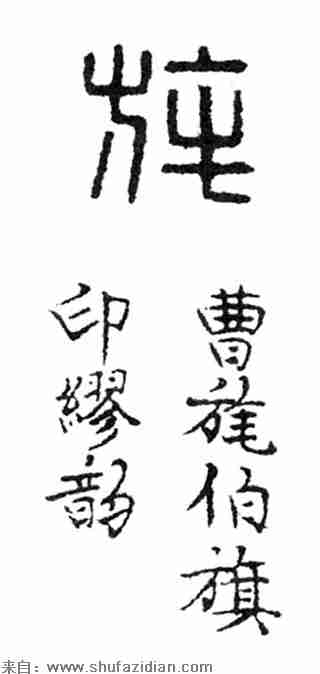 旄
曹旄伯旗
印繆韵
来自：www.shufazidian.com